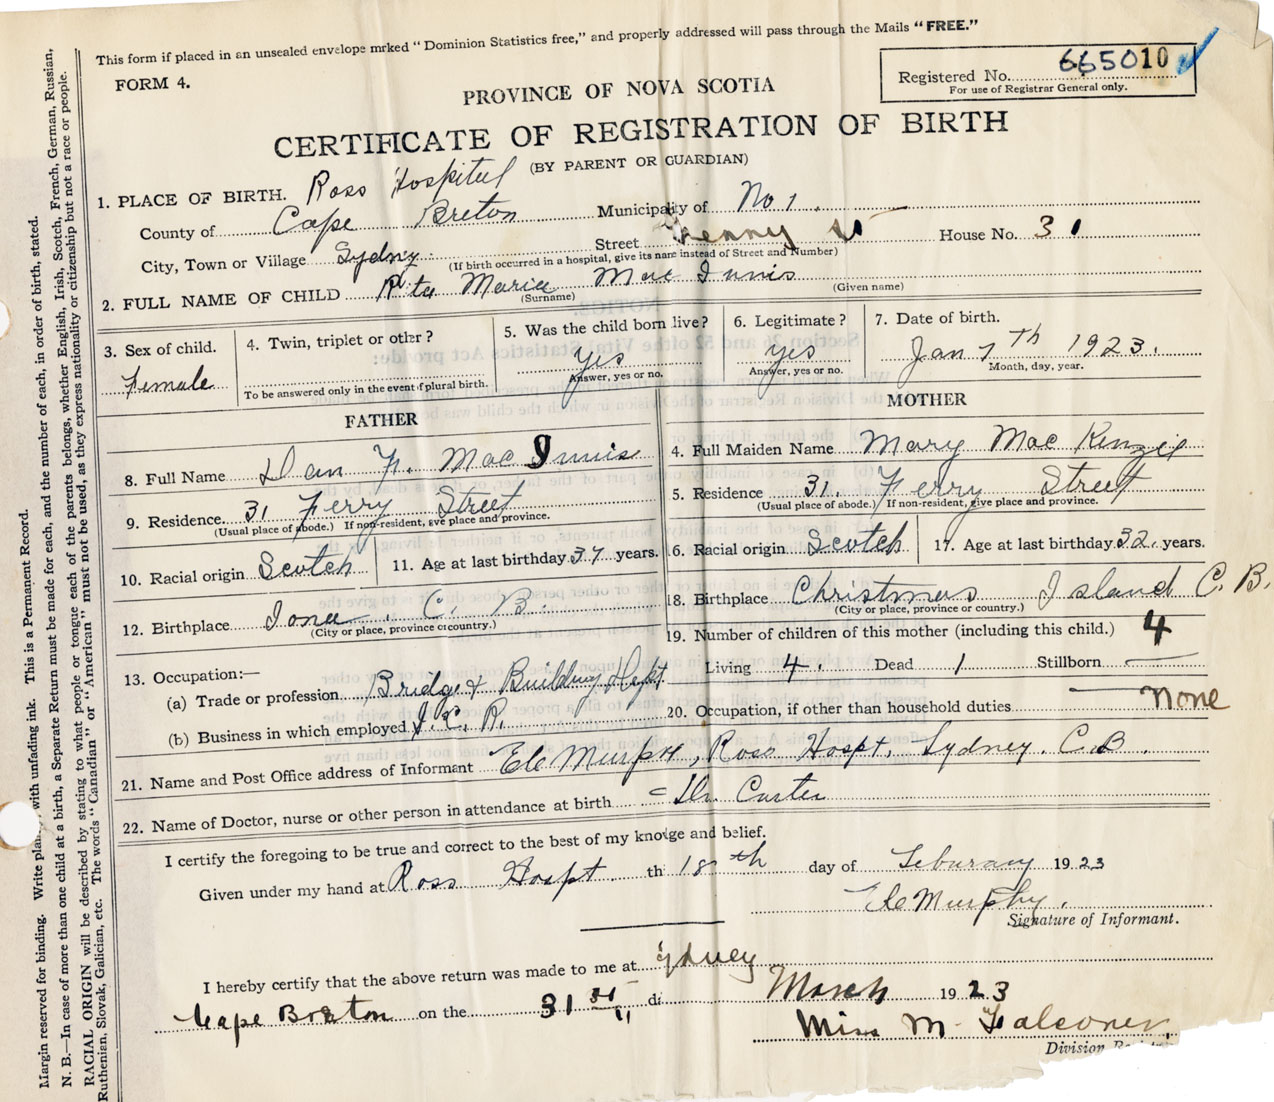 This form if placed in an unsealed envelope mrked "Dominion Statistics free," and properly addressed will pass through the Mails "FREE."
FORM 4.
Registered No. 665010
For use of Registrar General only.
PROVINCE OF NOVA SCOTIA
CERTIFICATE OF REGISTRATION OF BIRTH
(BY PARENT OR GUARDIAN)
1. PLACE OF BIRTH. Ross Hospital
County of Cape Breton Municipality of No 1.
City, Town or Village Sydney. Street Ferry St House No. 31
(If birth occurred in a hospital, give its name instead of Street and Number)
2. FULL NAME OF CHILD Rita Maria MacInnis
(Surname) (Given name)
3. Sex of child. Female
4. Twin, triplet or other?
To be answered only in the event of plural birth.
5. Was the child born live? yes
Answer, yes or no.
6. Legitimate? yes
Answer, yes or no.
7. Date of birth. Jan 7th 1923.
Month, day, year.
FATHER
8. Full Name Dan F. MacInnis
9. Residence. 31 Ferry Street
(Usual place of abode.) If non-resident, give place and province.
10. Racial origin Scotch
11. Age at last birthday 37 years.
12. Birthplace Iona C. B.
(City or place, province or country.)
13. Occupation:—
(a) Trade or profession Bridge & Building Dept
(b) Business in which employed I. C. R.
MOTHER
4. Full Maiden Name Mary MacKenzie
5. Residence 31. Ferry Street
(Usual place of abode.) If non-resident, give place and province.
16. Racial origin Scotch
17. Age at last birthday 32 years.
18. Birthplace Christmas Island C. B.
(City or place, province or country.)
19. Number of children of this mother (including this child.) 4
Living 4. Dead 1 Stillborn —
20. Occupation, if other than household duties None
21. Name and Post Office address of Informant Murphy, Ross Hospt, Sydney. C.B.
22. Name of Doctor, nurse or other person in attendance at birth Dr. Carter
I certify the foregoing to be true and correct to the best of my knolge and belief.
Given under my hand at Ross Hospt th 18th day of Feburary 1923
Murphy.
Signature of Informant.
I hereby certify that the above return was made to me at ydney
Cape Breton on the 31st d March 1923
Miss M. Falconer,
Division Registrar
Margin reserved for binding. Write plain with unfading ink. This is a Permanent Record.
N. B.—In case of more than one child at a birth, a Separate Return must be made for each, and the number of each, in order of birth, stated.
RACIAL ORIGIN will be described by stating to what people or tongue each of the parents belongs, whether English, Irish, Scotch, French, German, Russian,
Ruthenian, Slovak, Galician, etc. The words "Canadian" or "American" must not be used, as they express nationality or citizenship but not a race or people.